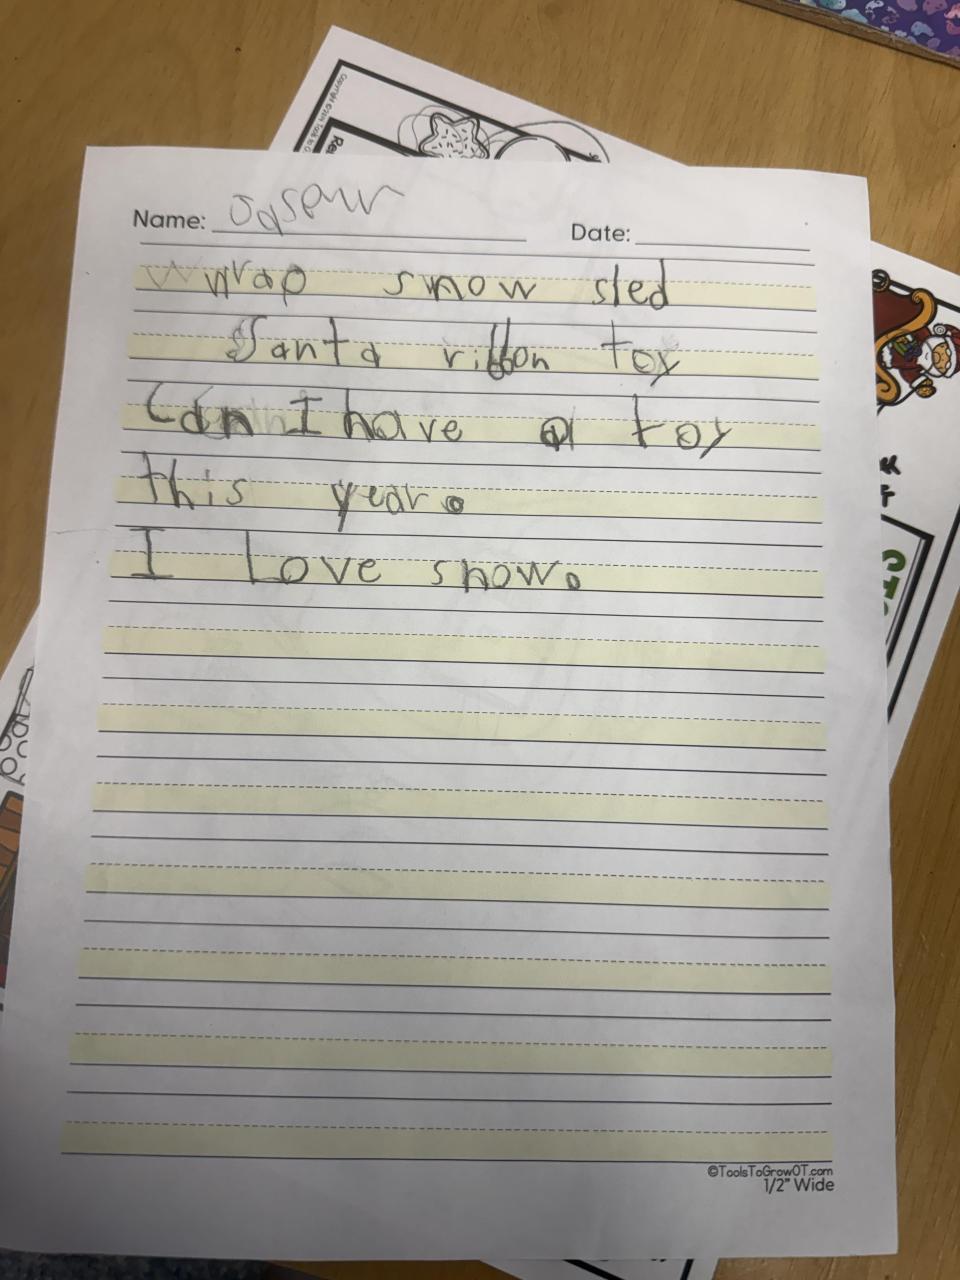 Name: Date:
wrap snow sled
Santa ribbon toy
Can I have a toy
this year.
I Love snow.
©ToolsToGrowOT.com
1/2" Wide